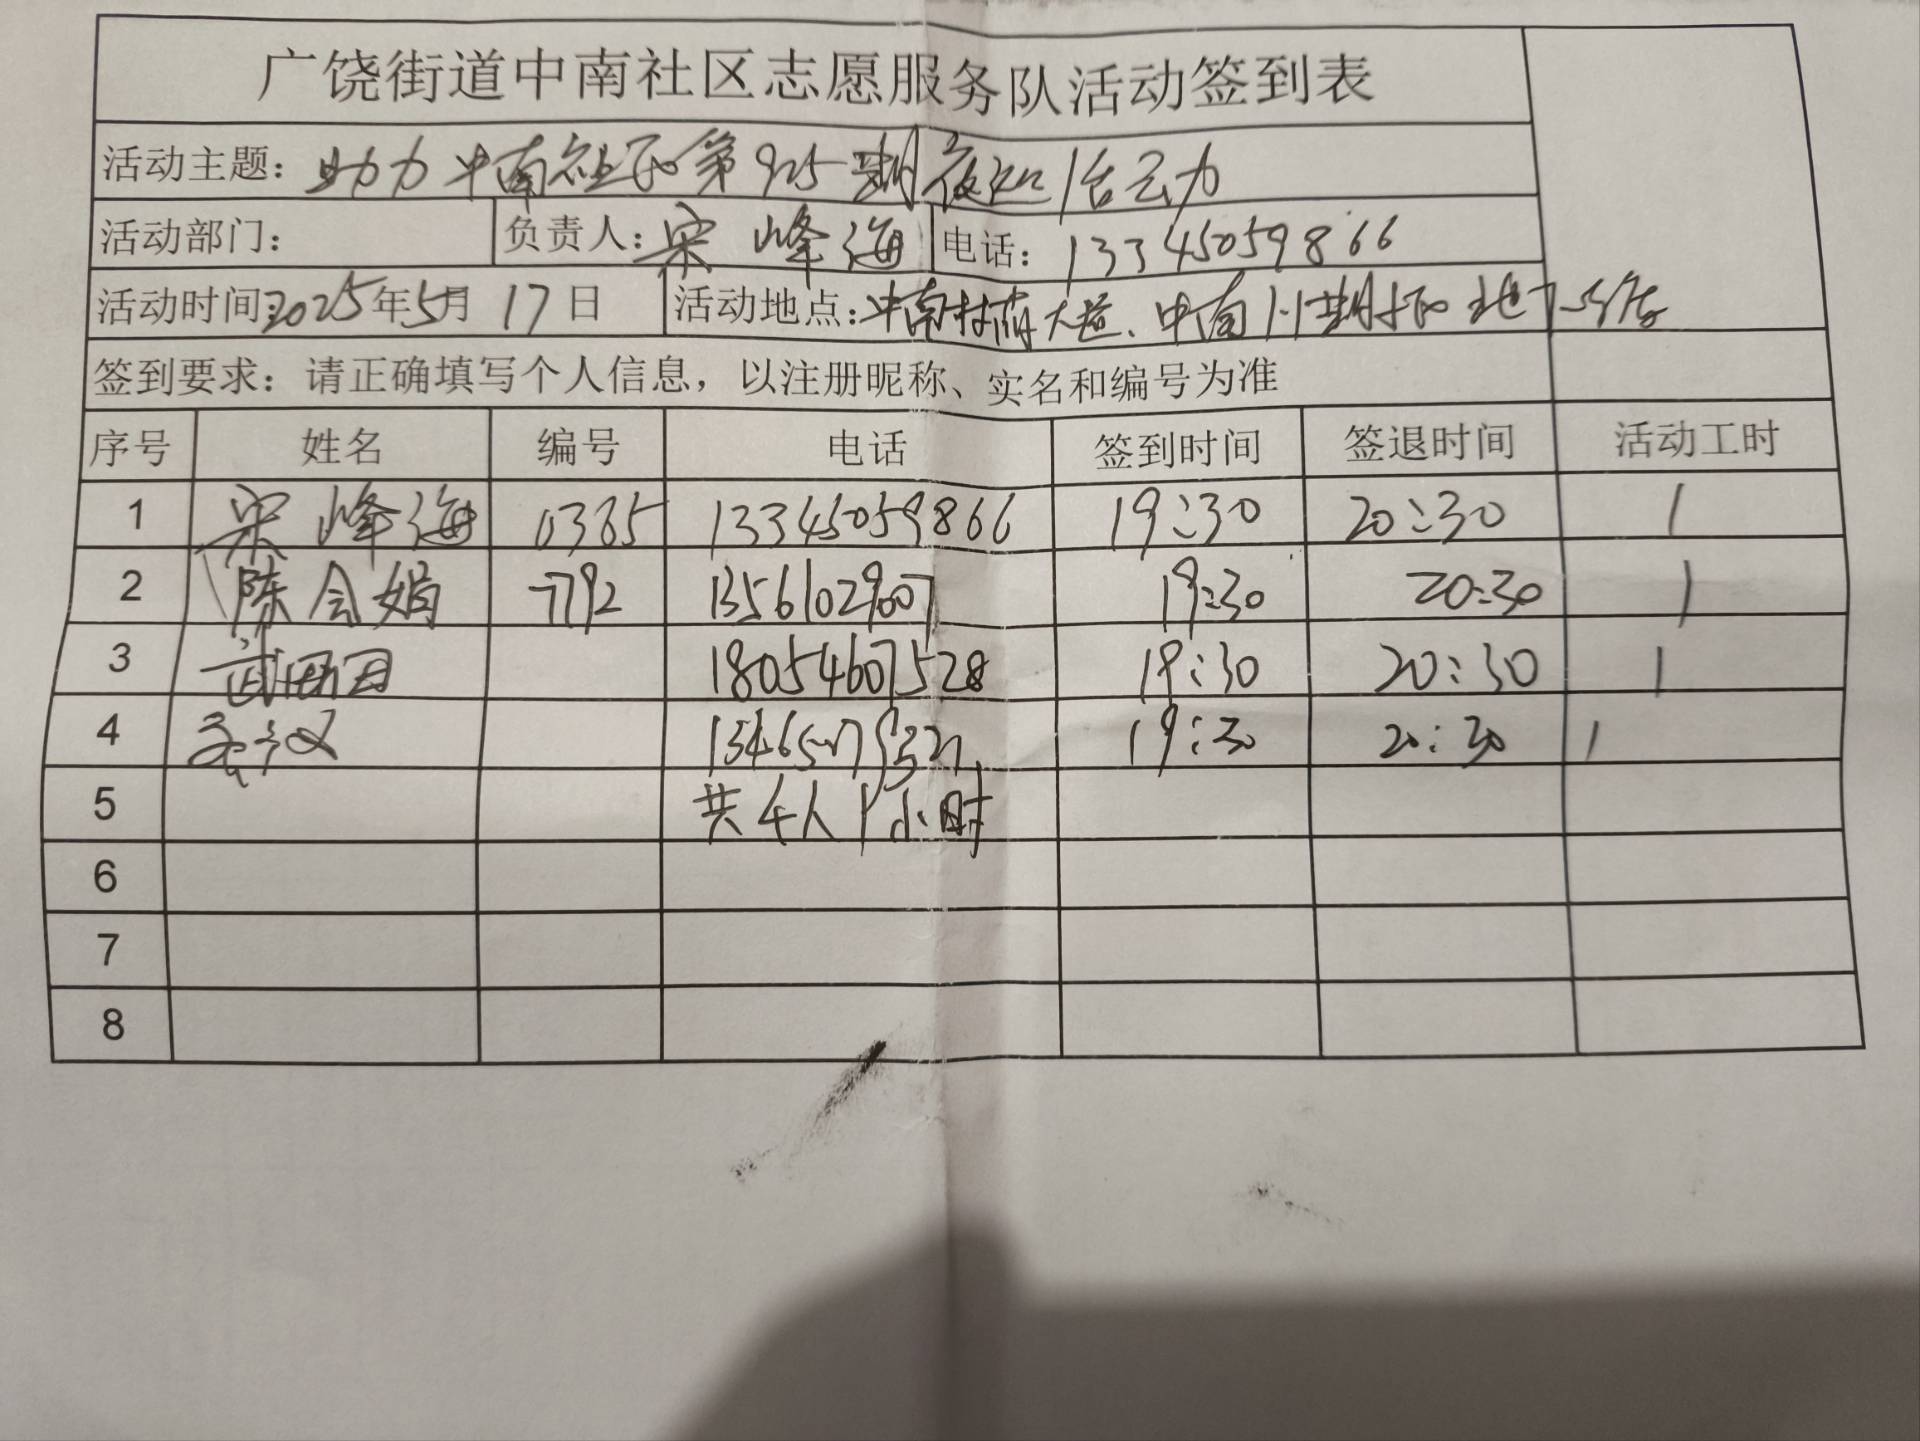 广饶街道中南社区志愿服务队活动签到表
活动主题：助力中南社区第925期夜巡活动
活动部门： 负责人：宋峰海 电话：13345059866
活动时间：2025年5月17日 活动地点：中南 大道、中南 期 地下
签到要求：请正确填写个人信息，以注册昵称、实名和编号为准
序号 姓名 编号 电话 签到时间 签退时间 活动工时
1 宋峰海 0365 13345059866 19:30 20:30 1
2 陈会娟 7792 13561029007 19:30 20:30 1
3 武 18054607528 19:30 20:30 1
4 19:30 20:30 1
5 共4人1小时
6
7
8